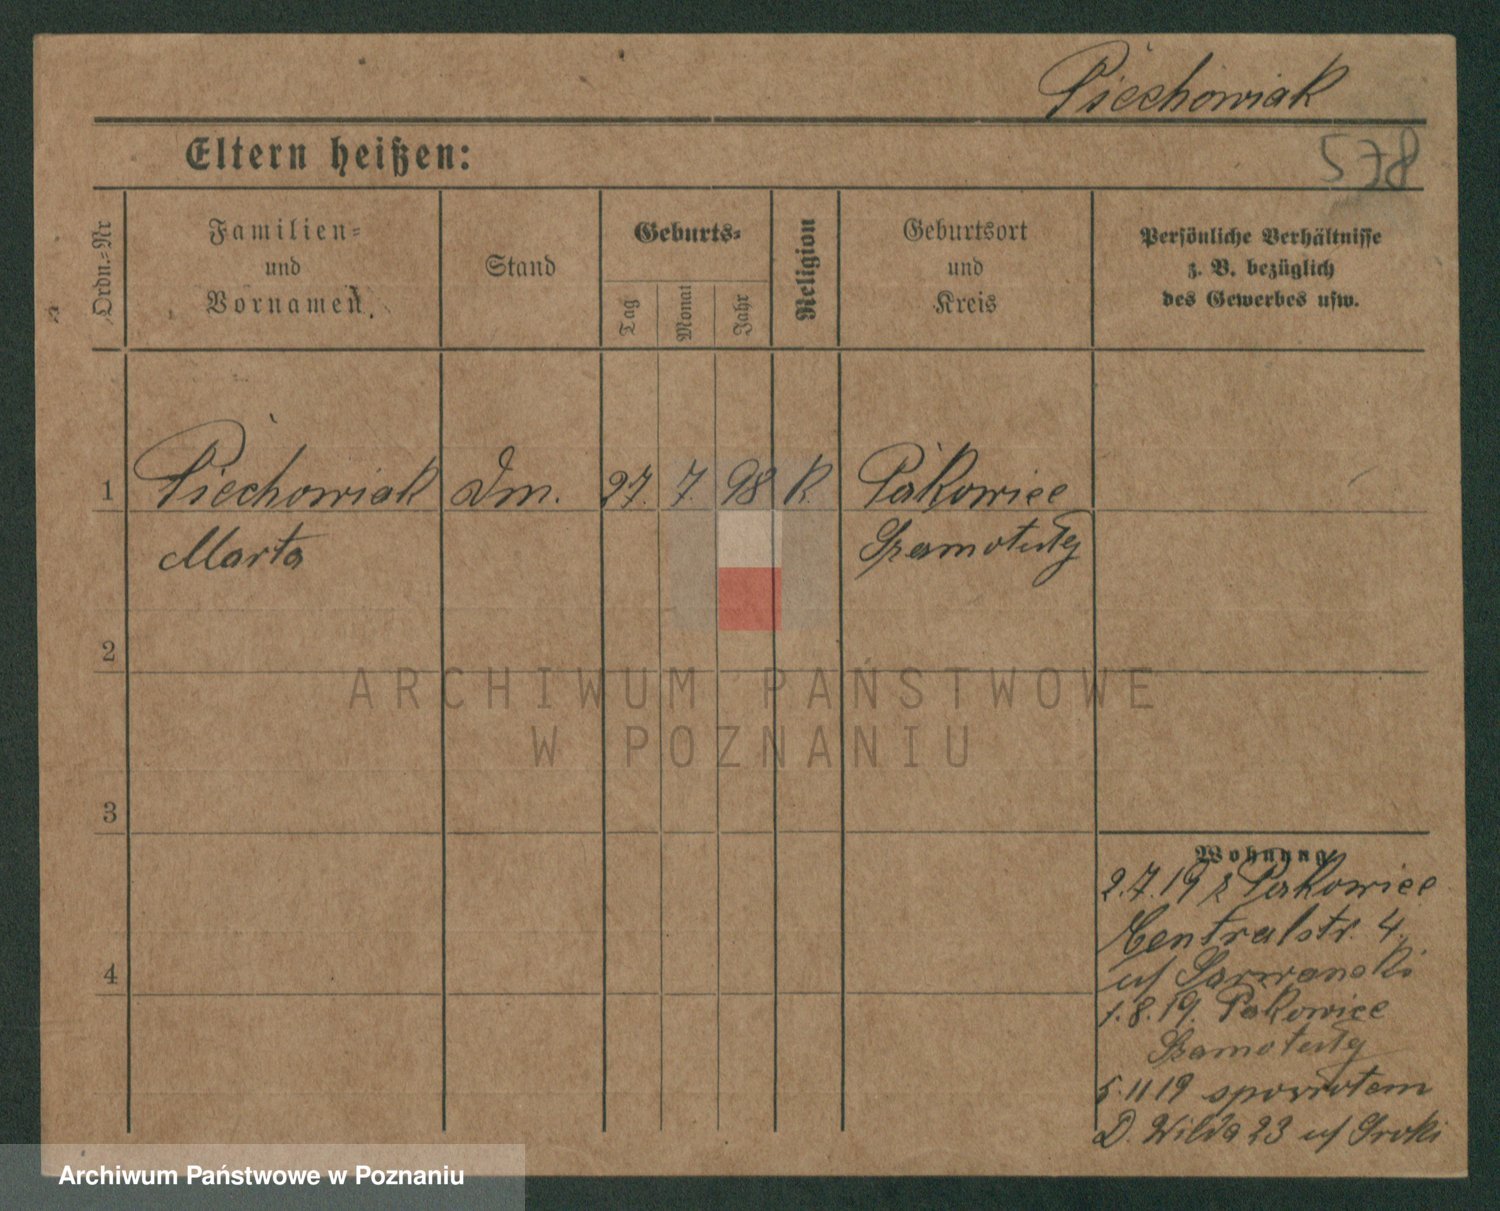 Piechowiak
578
Eltern heißen:
Ordn.-Nr
Familien-
und
Vornamen
Stand
Geburts-
Tag
Monat
Jahr
Religion
Geburtsort
und
Kreis
Persönliche Verhältnisse
z. B. bezüglich
des Gewerbes usw.
1 Piechowiak Dm. 27. 7. 98 K. Pakowice
Marta Szamotuły
2
3
4
Wohnung
2.7.19 z Pakowice
Centralstr. 4.
u/
1.8.19. Pakowice
Szamotuły
5.11 19 spowrotem
D. Wilda 23 u/
ARCHIWUM PAŃSTWOWE
W POZNANIU
Archiwum Państwowe w Poznaniu